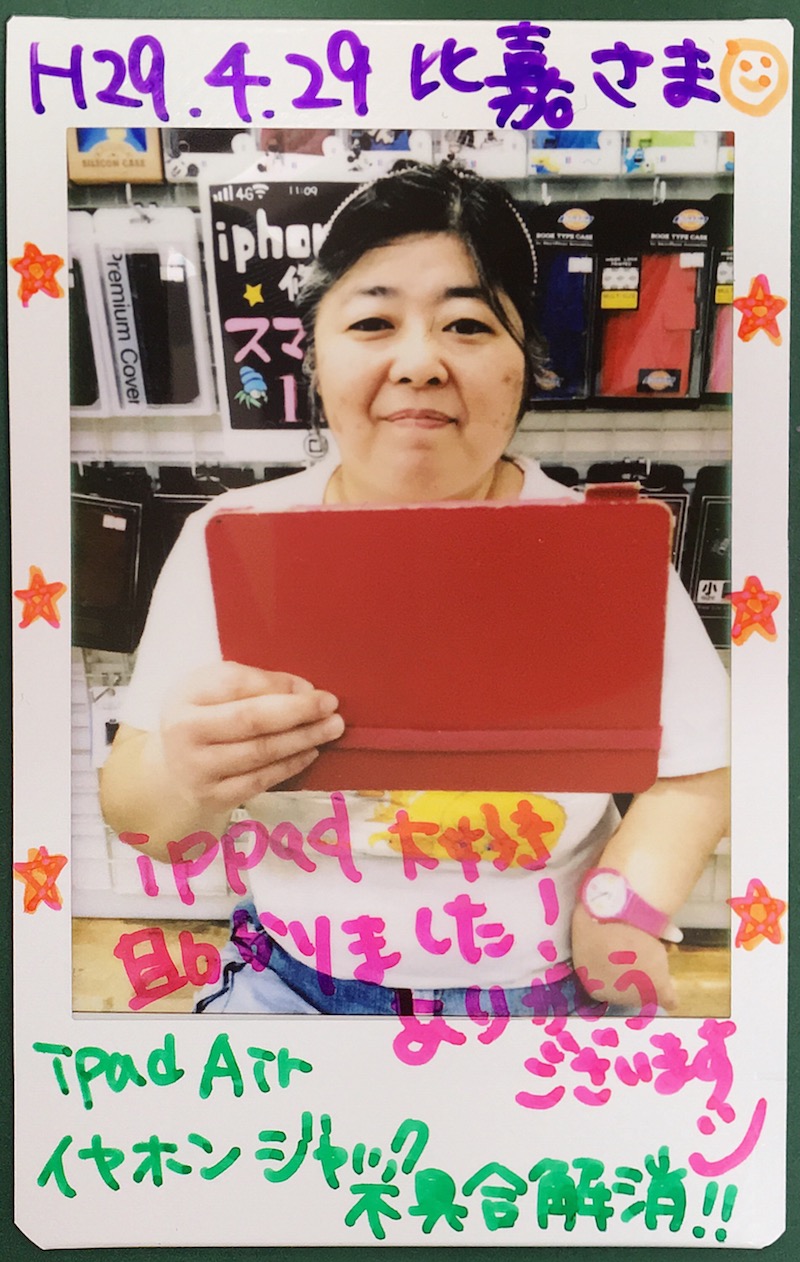 H29.4.29 比嘉さま
SILICON CASE
4G 11:09
iphon
修
スマ
1
Premium Cover
BOOK TYPE CASE
BOOK TYPE CASE
小
ippad 大好き
助かりました!
ありがとう
ございます
ipad Air
イヤホンジャック
不具合解消!!